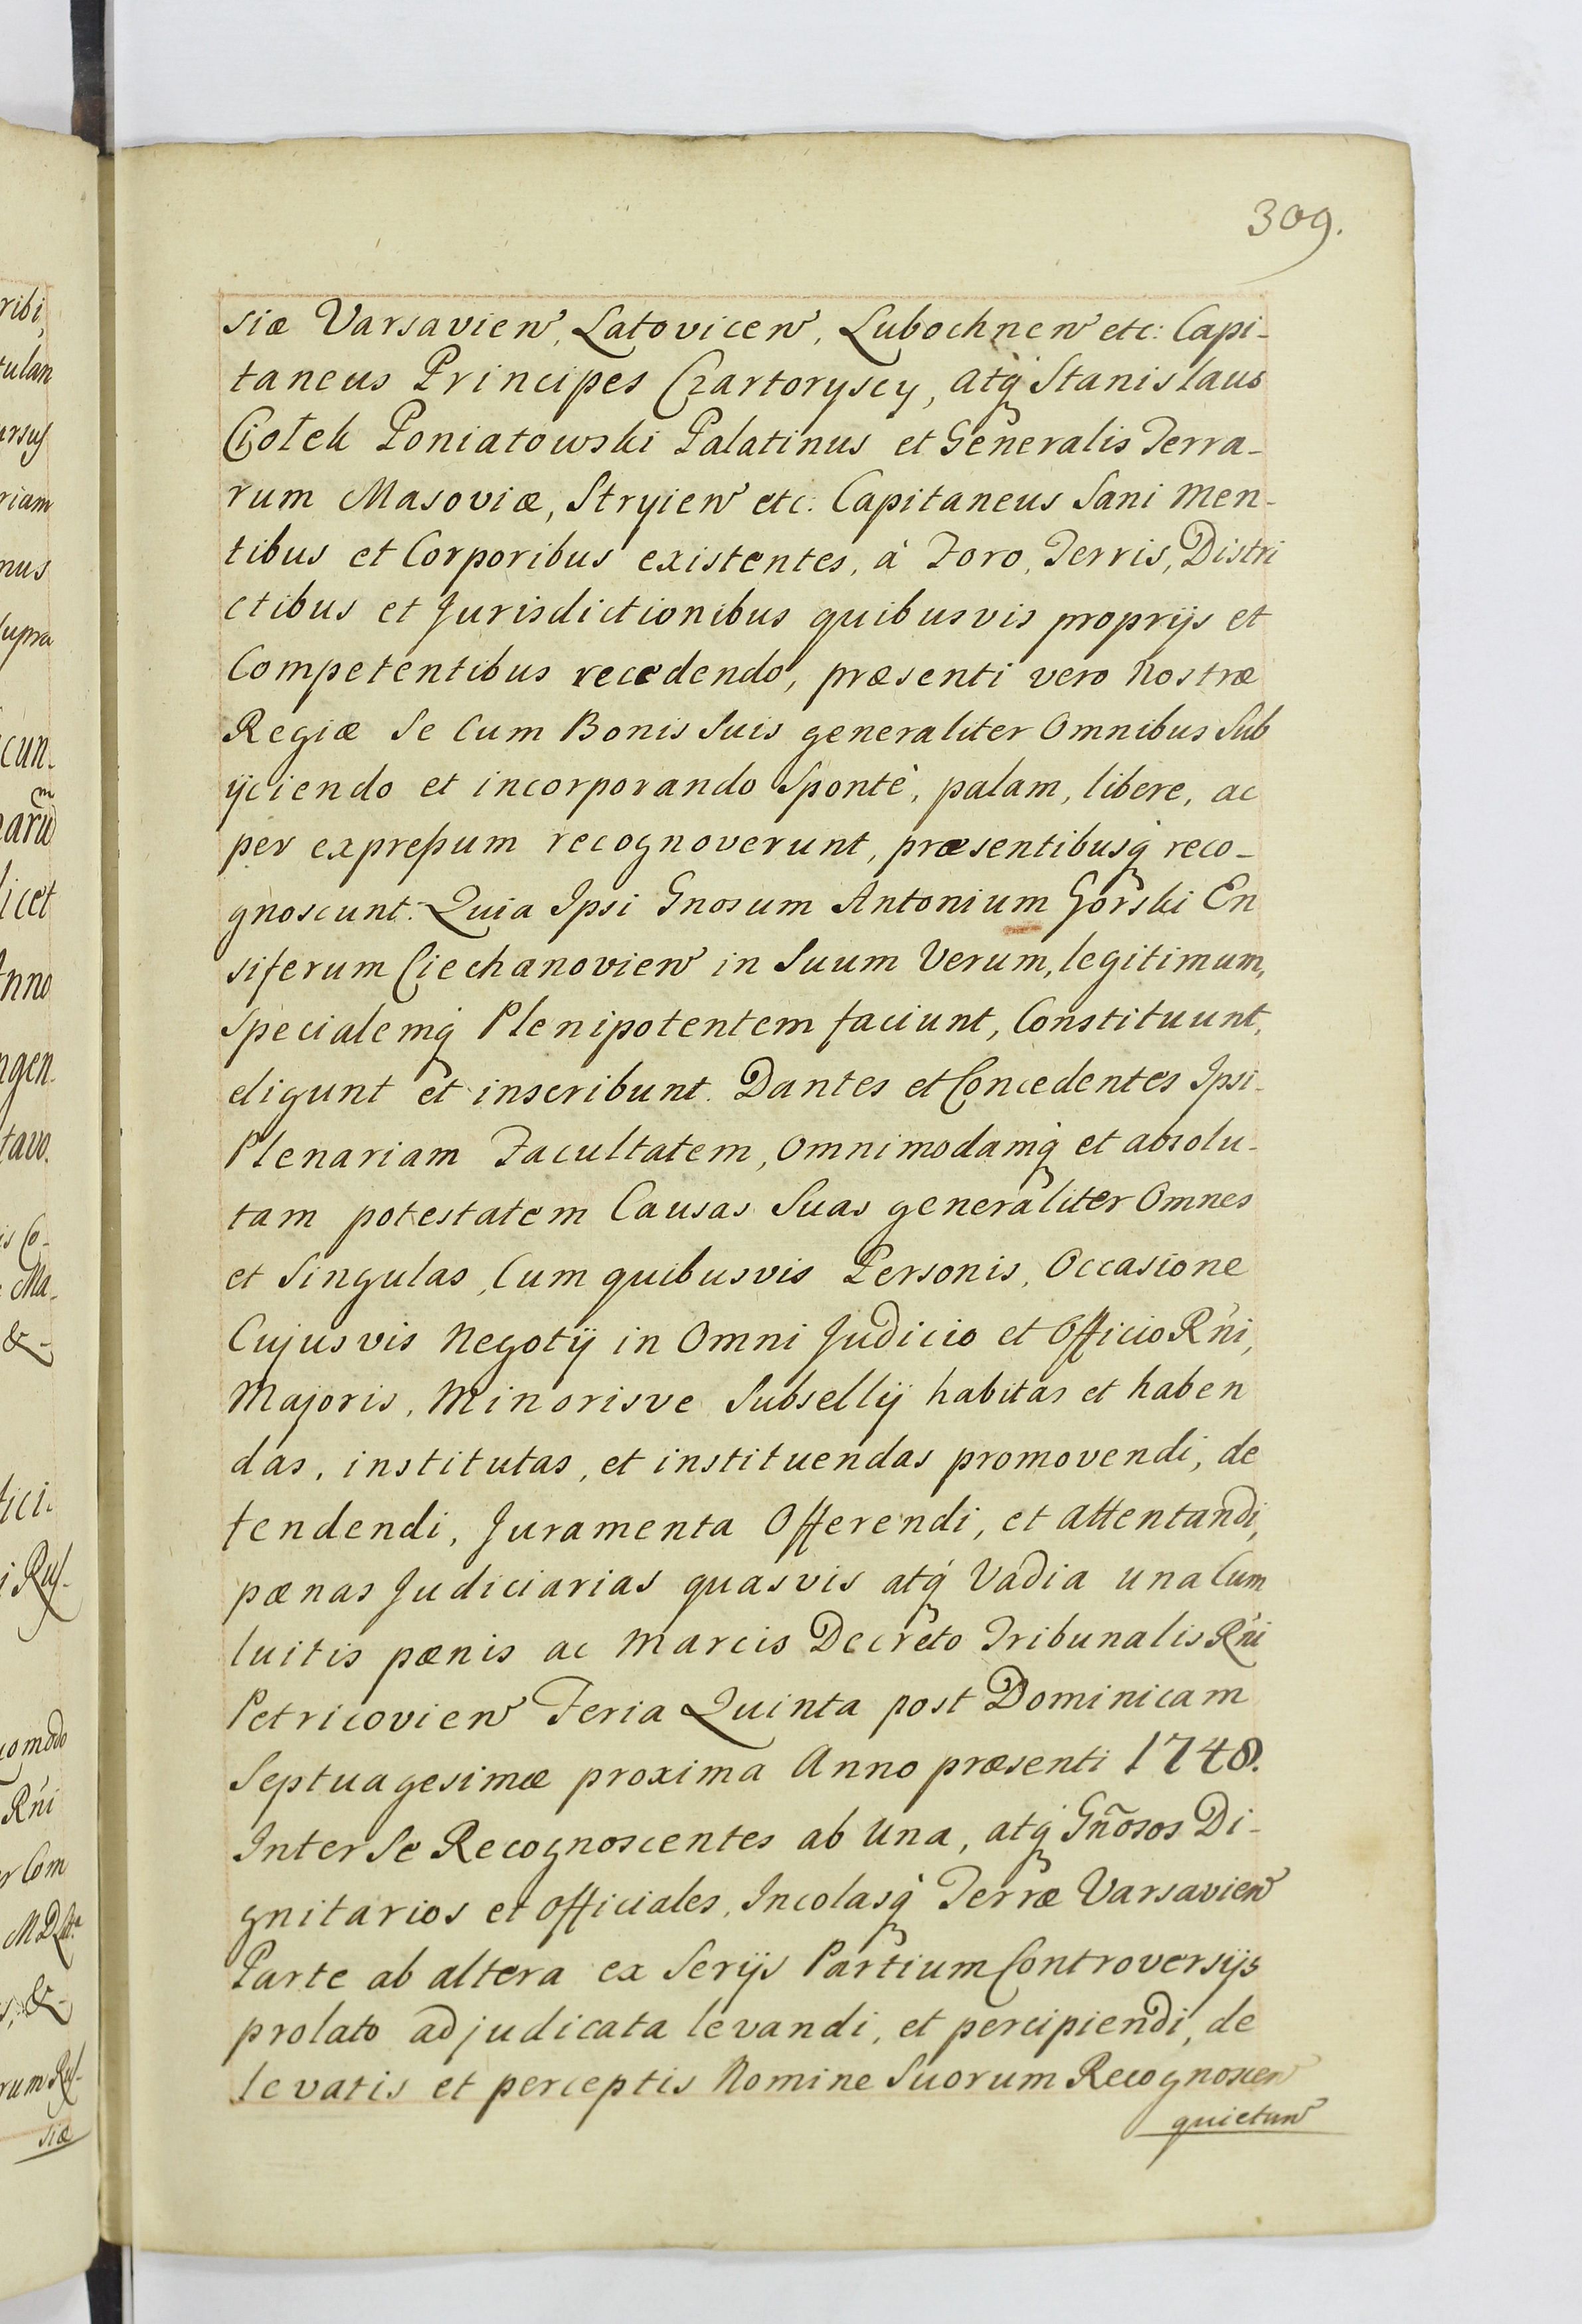 309.
siæ Varsavien, Latovicen, Lubochnen etc: Capi-
taneus Principes Czartoryscy, atq́ Stanislaus
Ciołek Poniatowski Palatinus et Generalis Terra-
rum Masoviæ, Stryien etc: Capitaneus Sani men-
tibus et Corporibus existentes, à Foro, Terris, Distri
ctibus et Jurisdictionibus quibusvis proprijs et
Competentibus recedendo, præsenti vero Nostræ
Regiæ Se Cum Bonis Suis generaliter Omnibus Sub
ijciendo et incorporando Spontè, palam, libere, ac
per expreßum recognoverunt, præsentibusq́ reco-
gnoscunt: Quia Ipsi Gnosum Antonium Gorski En
siferum Ciechanovien in Suum Verum, legitimum,
Specialemq́ Plenipotentem faciunt, Constituunt,
eligunt et inscribunt. Dantes et Concedentes Ipsi
Plenariam Facultatem, Omnimodamq́ et absolu-
tam potestatem Causas Suas generaliter Omnes
et Singulas, Cum quibusvis Personis, Occasione
Cujusvis Negotij in Omni Judicio et Officio Rńi,
Majoris, Minorisve Subsellij habitas et haben
das, institutas, et instituendas promovendi, de
fendendi, Juramenta Offerendi, et attentandi,
pænas Judiciarias quasvis atq́ Vadia una Cum
luitis pænis ac Marcis Decreto Tribunalis Rńi
Petricovien Feria Quinta post Dominicam
Septuagesimæ proxima Anno præsenti 1748.
Inter Se Recognoscentes ab Una, atq́ Gñosos Di-
gnitarios et Officiales, Incolasq́ Terræ Varsavien
Parte ab altera ex Serijs Partium Controversijs
prolato adjudicata levandi, et percipiendi, de
levatis et perceptis Nomine Suorum Recognoscen
quietan